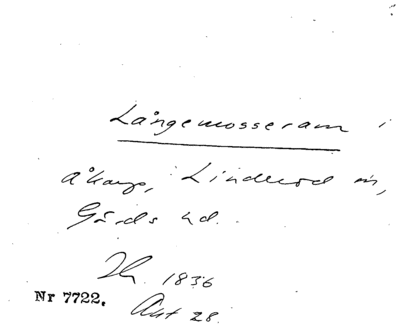 Långemosseram i
Åkarp, i Linderöd sn,
Gärds hd.
Th. 1836
Nr 7722. Akt 28.